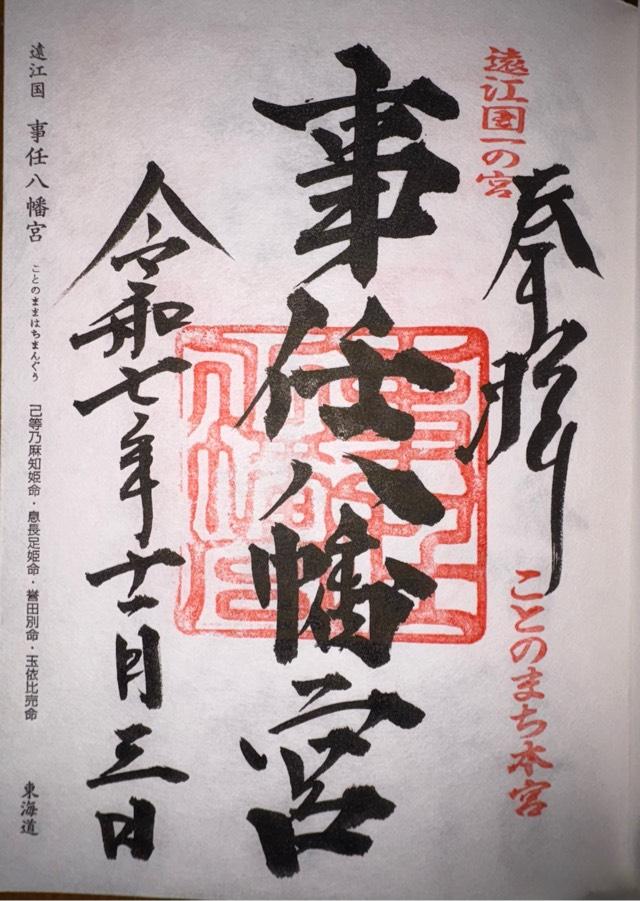 遠江国一の宮
奉拝
ことのまち本宮
事任八幡宮
令和七年十一月三日
遠江国 事任八幡宮 ことのままはちまんぐう 己等乃麻知姫命・息長足姫命・誉田別命・玉依比売命 東海道